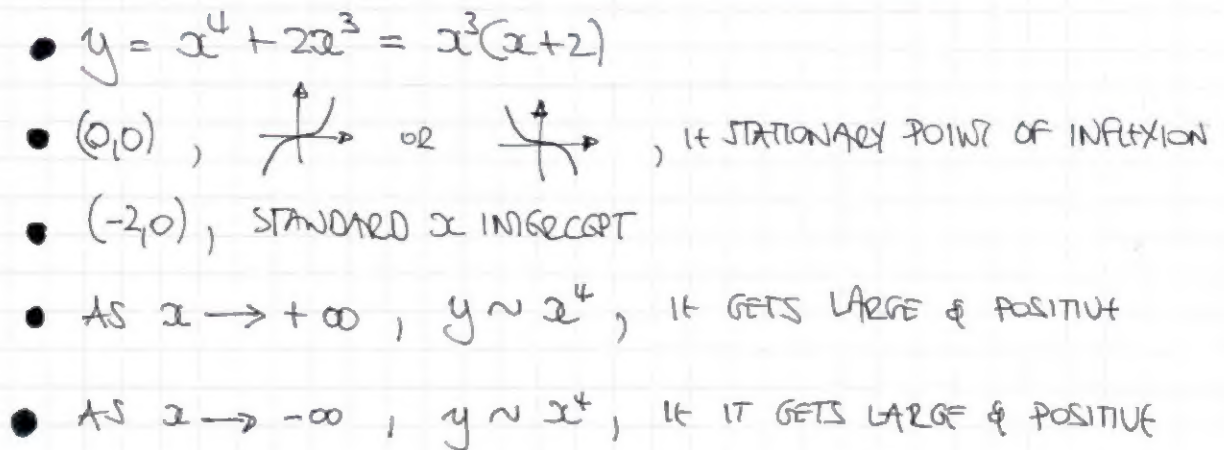 • y = x⁴ + 2x³ = x³(x+2)
• (0,0), OR , IE STATIONARY POINT OF INFLEXION
• (-2,0), STANDARD x INTERCEPT
• AS x → +∞, y ~ x⁴, IE GETS LARGE & POSITIVE
• AS x → -∞, y ~ x⁴, IE IT GETS LARGE & POSITIVE